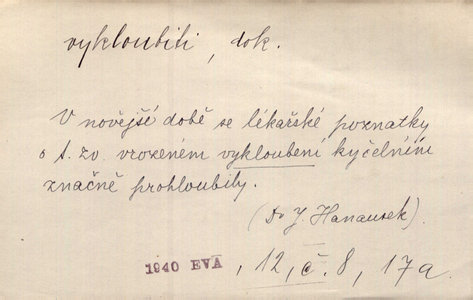 vykloubiti, dok.
V novější době se lékařské poznatky
o t. zv. vrozeném vykloubení kyčelním
značně prohloubily.
(Dr J. Hanausek).
1940 EVA, 12, č. 8, 17a.